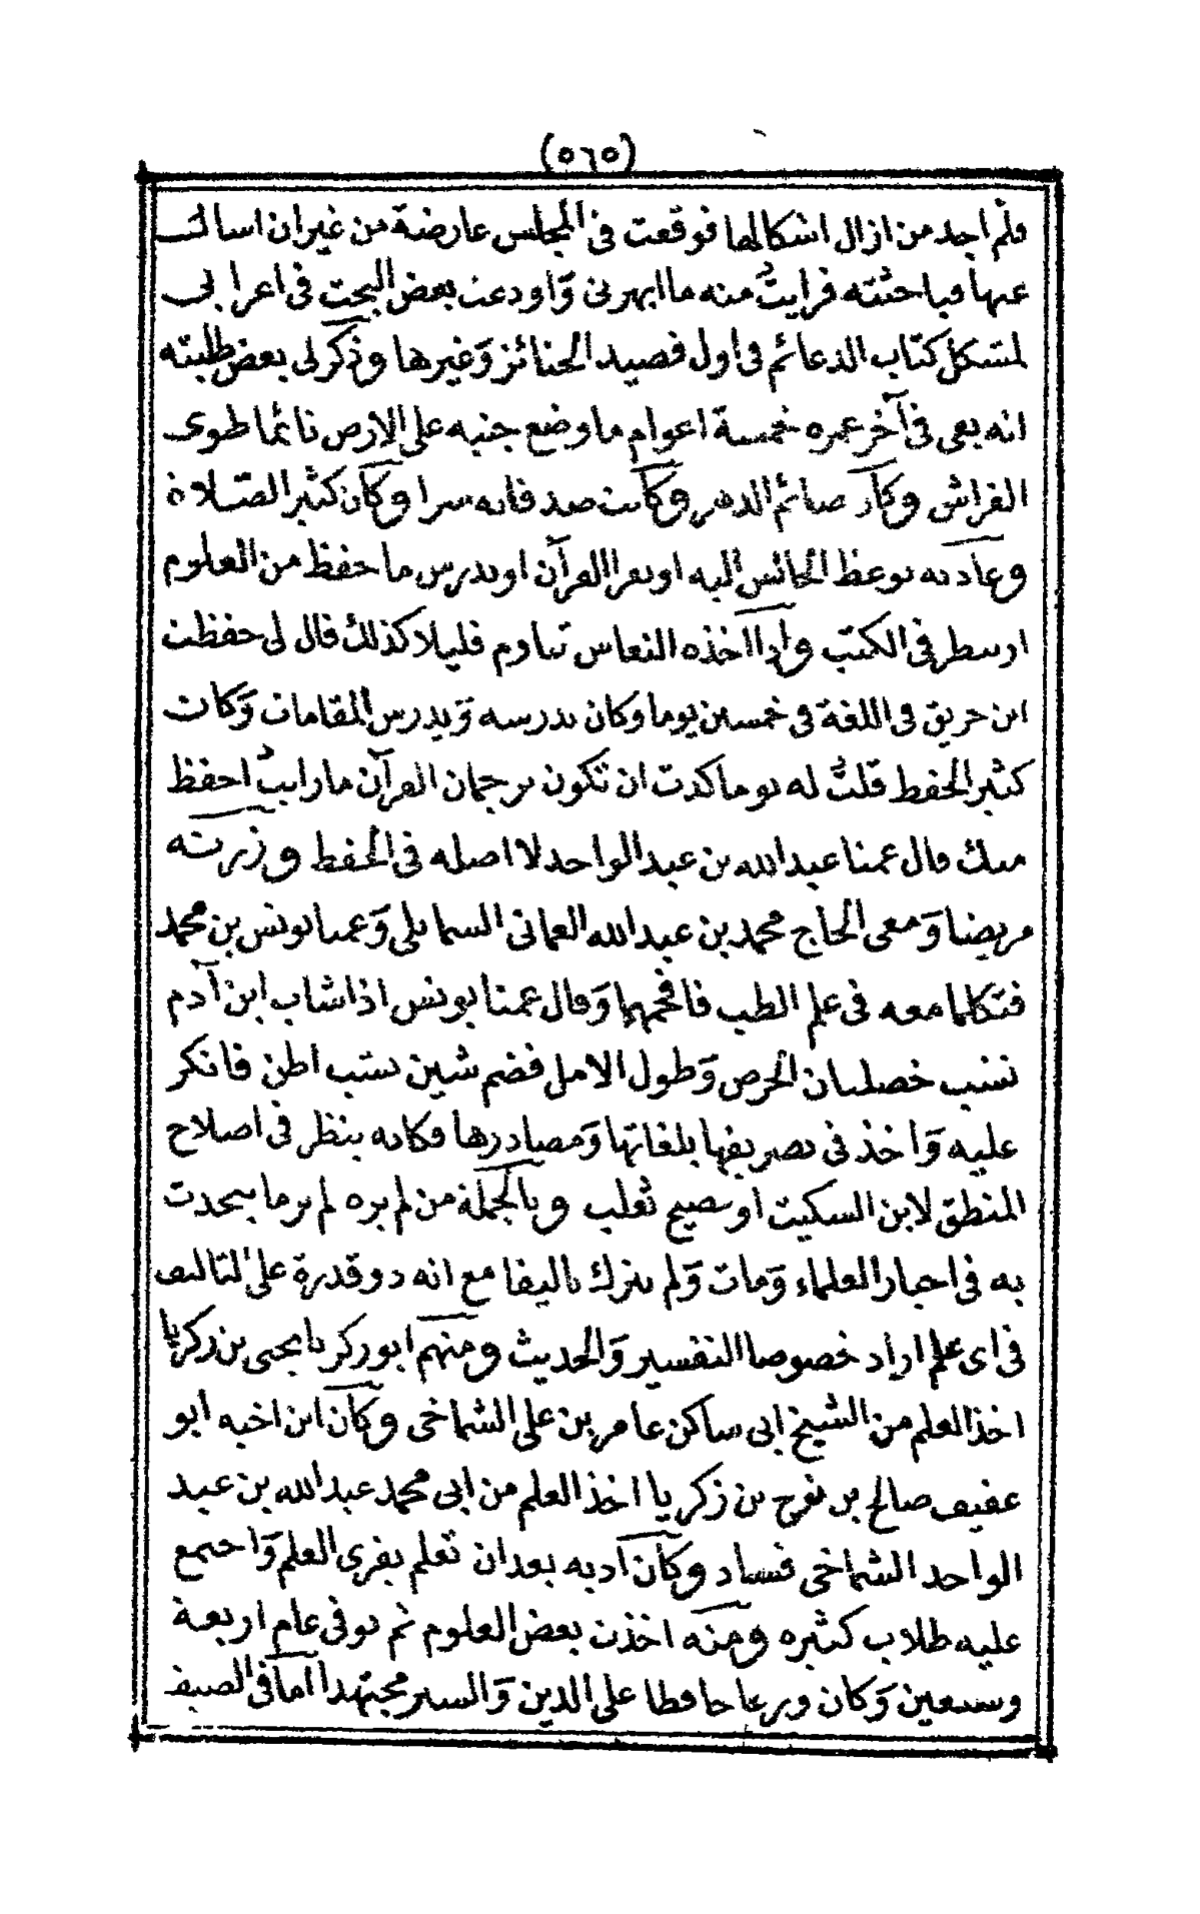 (٥٦٥)
فلم اجد من ازال اشكالها فوقعت في المجلس عارضة من غير ان اسائلك
عنها فباحثته فرايتُ منه ما ابهرني وَاودعت بعض البحث في اعرابي
لمشكل كتاب الدعائم في اول قصيد الجنائز وَغيرها وذكر لي بعض طلبته
انه بقي في آخر عمره خمسة اعوام ما وضع جنبه على الارض نائما طوى
الفراش وكان صائم الدهر وكانت صدقاته سرا وكان كثير الصلاة
وعادته يوعظ الجالس اليه او يقرا القرآن او يدرس ما حفظ من العلوم
او ينظر في الكتب واذا اخذه النعاس تناوم قليلا كذلك قال لي حفظت
ابن حريق في اللغة في خمسين يوما وكان يدرسه وَيدرس المقامات وَكان
كثير الحفظ قلتُ له يوما كدت ان تكون ترجمان القرآن ما رايتُ احفظ
منك قال عمنا عبد الله بن عبد الواحد لا اصله في الحفظ وزرته
مريضا وَمعي الحاج محمد بن عبد الله العماني السمايلي وَعمنا يونس بن محمد
فتكلما معه في علم الطب فافحمهما وَقال عمنا يونس اذا شاب ابن آدم
تشب خصلتان الحرص وَطول الامل فضم شين تشب اظن فانكر
عليه وَاخذ في تصريفها بلغاتها وَمصادرها فكانه ينظر في اصلاح
المنطق لابن السكيت او فصيح ثعلب وبالجملة من لم يره لم ير ما يتحدث
به في اخبار العلماء وَمات وَلم يترك تاليفا مع انه ذو قدرة على التاليف
في اي علم اراد خصوصا التفسير وَالحديث ومنهم ابو زكريا يحيى بن زكريا
اخذ العلم من الشيخ ابي ساكن عامر بن علي الشماخي وكان ابن اخيه ابو
عفيف صالح بن نوح بن زكريا اخذ العلم من ابي محمد عبد الله بن عبد
الواحد الشماخي فساد وكان ادبه بعد ان تعلم يقري العلم وَاجتمع
عليه طلاب كثيره ومنه اخذت بعض العلوم ثم توفي عام اربعة
وسبعين وَكان ورعا حافظا على الدين وَالسير مجتهدا اما في الصيف